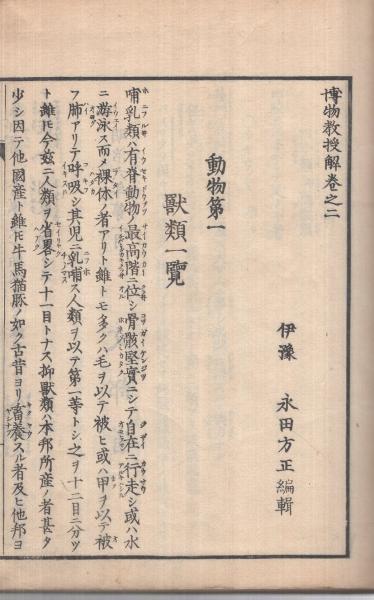 博物教授解卷之二
伊豫 永田方正編輯
動物第一
獸類一覽
哺乳類ハ有脊動物ノ最高階ニ位シ骨骸堅實ニシテ自在ニ行走シ或ハ水
ニ游泳ス而メ裸休ノ者アリト雖トモ多クハ毛ヲ以テ被ヒ或ハ甲ヲ以テ被
フ肺アリテ呼吸シ其児ニ乳哺ス人類ヲ以テ第一等トシ之ヲ十二目ニ分ツ
ト雖𪜈今玆ニ人類ヲ省畧シテ十一目トナス抑獸類ハ本邦所産ノ者甚タ
少シ因テ他國産ト雖𪜈牛馬猫豚ノ如ク古昔ヨリ畜養スル者及ヒ他邦ヨ